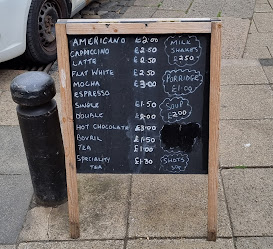 AMERICANO £2.00
CAPPACINO £2.50
LATTE £2.50
FLAT WHITE £2.50
MOCHA £3.00
ESPRESSO
SINGLE £1.50
DOUBLE £2.00
HOT CHOCOLATE £3.00
BOVRIL £1.50
TEA £1.00
SPECIALITY TEA £1.30
MILK SHAKES £2.50
PORRIDGE £1.00
SOUP £2.00
SHOTS